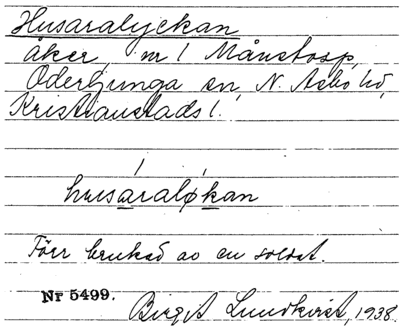 Husaralyckan
åker, nr 1 Månstorp,
Oderljunga sn, N. Åsbo hd,
Kristianstads l.
husaraløkan
Förr brukad av en soldat.
Nr 5499.
Birgit Lundkvist, 1938.